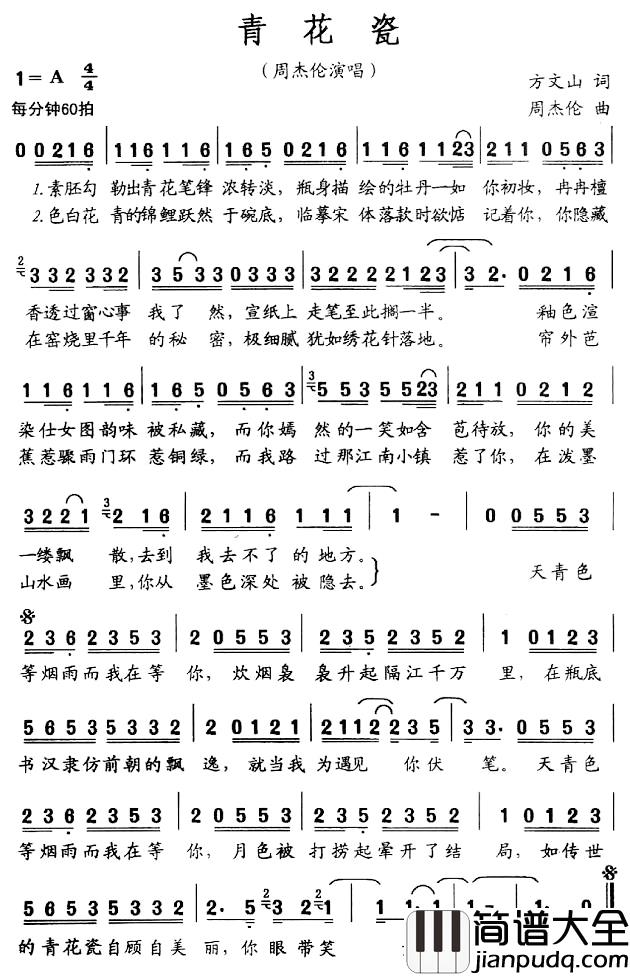 青花瓷
（周杰伦演唱）
1=A 4/4
方文山 词
每分钟60拍
周杰伦 曲
0 0 2 1 6 | 1 1 6 1 1 6 | 1 6 5 0 2 1 6 | 1 1 6 1 1 1 2 3 | 2 1 1 0 5 6 3
1.素胚勾 勒出青花笔锋 浓转淡，瓶身描 绘的牡丹一如 你初妆，冉冉檀
2.色白花 青的锦鲤跃然 于碗底，临摹宋 体落款时欲惦 记着你，你隐藏
2 3 3 2 3 3 2 | 3 5 3 3 0 3 3 3 | 3 2 2 2 2 1 2 3 | 3 2· 0 2 1 6
香透过窗心事 我了 然，宣纸上 走笔至此搁一半。 釉色渲
在窑烧里千年 的秘 密，极细腻 犹如绣花针落地。 帘外芭
1 1 6 1 1 6 | 1 6 5 0 5 6 3 | 3 5 5 3 5 5 2 3 | 2 1 1 0 2 1 2
染仕女图韵味 被私藏，而你嫣 然的一笑如含 苞待放，你的美
蕉惹骤雨门环 惹铜绿，而我路 过那江南小镇 惹了你，在泼墨
3 2 2 1 3 2 1 6 | 2 1 1 6 1 1 1 | 1 - | 0 0 5 5 3
一缕飘 散，去到 我去不了 的地方。
山水画 里，你从 墨色深处 被隐去。
天青色
2 3 6 2 3 5 3 | 2 0 5 5 3 | 2 3 5 2 3 5 3 | 1 0 1 2 3
等烟雨而我在等 你，炊烟袅 袅升起隔江千万 里，在瓶底
5 6 5 3 5 3 3 2 | 2 0 1 2 1 | 2 1 1 2 2 3 5 | 3 3· 0 5 5 3
书汉隶仿前朝的飘 逸，就当我 为遇见 你伏 笔。天青色
2 3 6 2 3 5 3 | 2 0 5 5 3 | 2 3 5 2 3 5 3 | 1 0 1 2 3
等烟雨而我在等 你，月色被 打捞起晕开了结 局，如传世
5 6 5 3 5 3 3 2 | 2· 5 | 2 3 2 2 1 1 | 1· 1 | 1 0
的青花瓷自顾自美 丽，你眼带笑
简谱大全
jianpudq.com